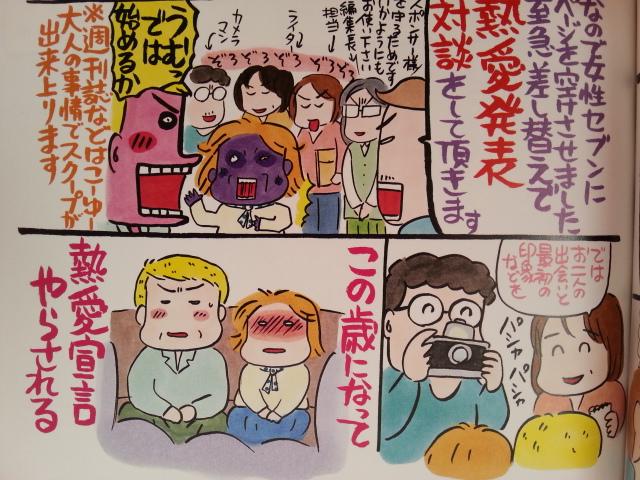 なので女性セブンに
ページを空けさせました
至急差し替えで
熱愛発表
対談をして頂きます
スポンサー様
を守るためです
いかようにも
お使い下さい
編集長
担当→
ライター
カメラマン
ぞろ
ぞろぞろ
ぞろ
ぞろぞろ
うむっ
では
始めるか
※週刊誌などはこーゆー
大人の事情でスクープが
出来上ります
では
お二人の
出会いと
最初の
印象
などを
パシャ パシャ
この歳になって
熱愛宣言
やらされる